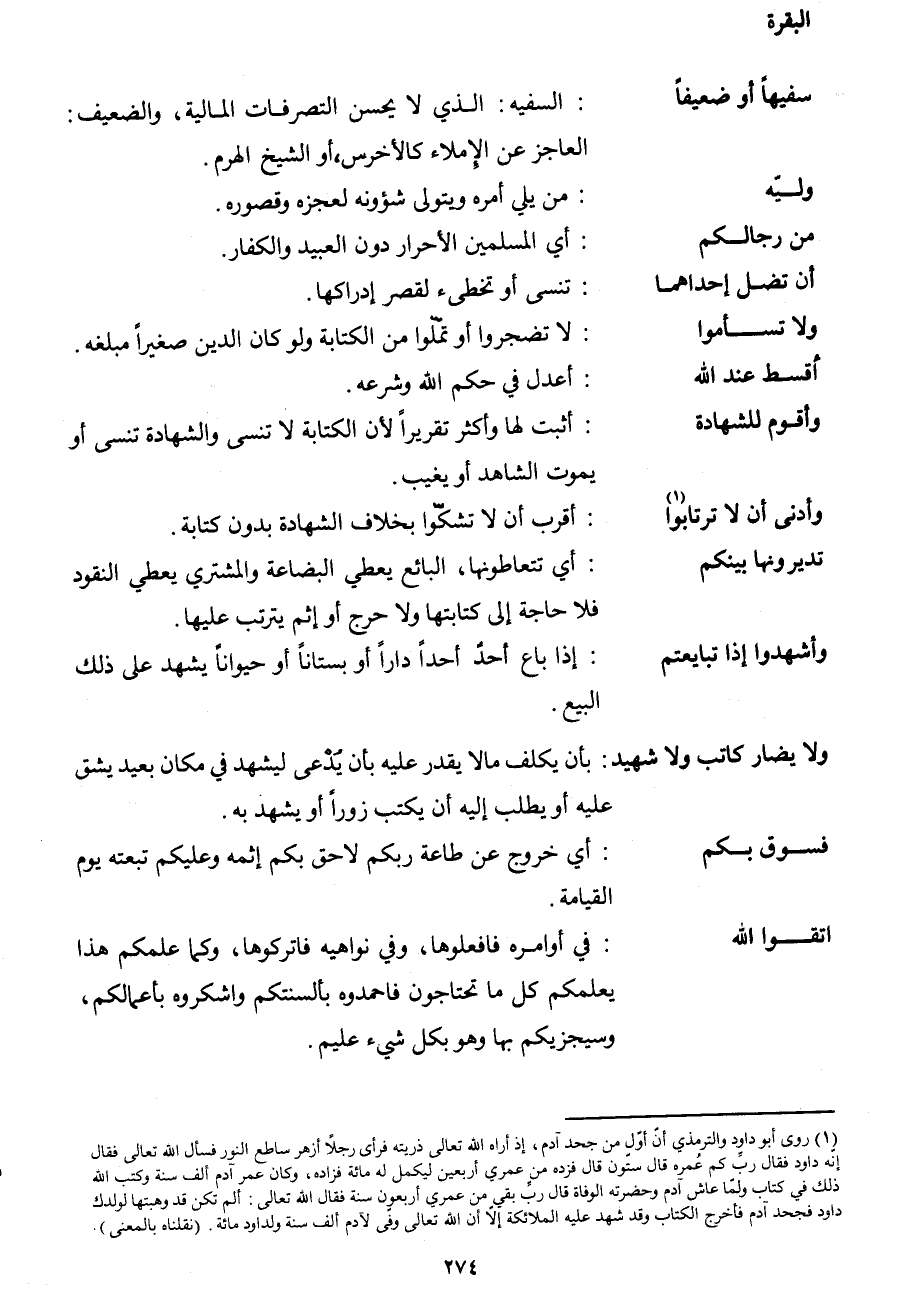 البقرة
سفيهاً أو ضعيفاً : السفيه: الذي لا يحسن التصرفات المالية، والضعيف:
العاجز عن الإملاء كالأخرس،أو الشيخ الهرم.
وليّه : من يلي أمره ويتولى شؤونه لعجزه وقصوره.
من رجالكم : أي المسلمين الأحرار دون العبيد والكفار.
أن تضل إحداهما : تنسى أو تخطىء لقصر إدراكها.
ولا تسأموا : لا تضجروا أو تملّوا من الكتابة ولو كان الدين صغيراً مبلغه.
أقسط عند الله : أعدل في حكم الله وشرعه.
وأقوم للشهادة : أثبت لها وأكثر تقريراً لأن الكتابة لا تنسى والشهادة تنسى أو
يموت الشاهد أو يغيب.
وأدنى أن لا ترتابوا(١) : أقرب أن لا تشكّوا بخلاف الشهادة بدون كتابة.
تديرونها بينكم : أي تتعاطونها، البائع يعطي البضاعة والمشتري يعطي النقود
فلا حاجة إلى كتابتها ولا حرج أو إثم يترتب عليها.
وأشهدوا إذا تبايعتم : إذا باع أحدٌ أحداً داراً أو بستاناً أو حيواناً يشهد على ذلك
البيع.
ولا يضار كاتب ولا شهيد: بأن يكلف مالا يقدر عليه بأن يُدْعى ليشهد في مكان بعيد يشق
عليه أو يطلب إليه أن يكتب زوراً أو يشهد به.
فسوق بكم : أي خروج عن طاعة ربكم لاحق بكم إثمه وعليكم تبعته يوم
القيامة.
اتقوا الله : في أوامره فافعلوها، وفي نواهيه فاتركوها، وكما علمكم هذا
يعلمكم كل ما تحتاجون فاحمدوه بألسنتكم واشكروه بأعمالكم،
وسيجزيكم بها وهو بكل شيء عليم.
(١) روى أبو داود والترمذي أنّ أوّل من جحد آدم، إذ أراه الله تعالى ذريته فرأى رجلاً أزهر ساطع النور فسأل الله تعالى فقال
إنّه داود فقال ربِّ كم عُمره قال ستّون قال فزده من عمري أربعين ليكمل له مائة فزاده، وكان عمر آدم ألف سنة وكتب الله
ذلك في كتاب ولمّا عاش آدم وحضرته الوفاة قال ربِّ بقي من عمري أربعون سنة فقال الله تعالى: ألم تكن قد وهبتها لولدك
داود فجحد آدم فأخرج الكتاب وقد شهد عليه الملائكة إلّا أن الله تعالى وفّى لآدم ألف سنة ولداود مائة. (نقلناه بالمعنى).
٢٧٤